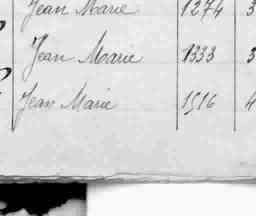 Jean Marie 1274 3
Jean Marie 1333 3
Jean Marie 1516 4